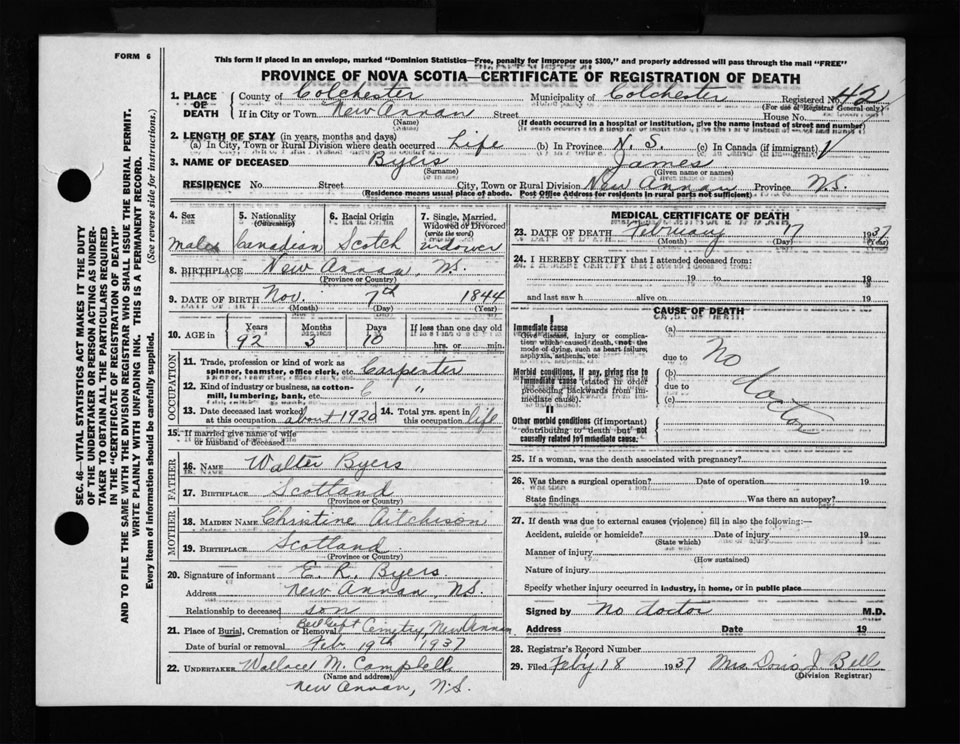 FORM 6
This form if placed in an envelope, marked "Dominion Statistics—Free, penalty for improper use $300," and properly addressed will pass through the mail "FREE"
PROVINCE OF NOVA SCOTIA—CERTIFICATE OF REGISTRATION OF DEATH
1. PLACE OF DEATH
County of Colchester Municipality of Colchester Registered No. 42
(For use of Registrar General only)
If in City or Town New Annan Street House No.
(Name) (If death occurred in a hospital or institution, give the name instead of street and number)
2. LENGTH OF STAY (in years, months and days)
(a) In City, Town or Rural Division where death occurred Life (b) In Province N. S. (c) In Canada (if immigrant)
3. NAME OF DECEASED Byers James
(Surname) (Given name or names)
RESIDENCE No. Street City, Town or Rural Division New Annan Province N.S.
(Residence means usual place of abode. Post Office Address for residents in rural parts not sufficient)
4. Sex 5. Nationality (Citizenship) 6. Racial Origin 7. Single, Married, Widowed or Divorced (write the word)
male Canadian Scotch widower
8. BIRTHPLACE New Annan, N.S.
(Province or Country)
9. DATE OF BIRTH Nov. 7th 1844
(Month) (Day) (Year)
10. AGE in Years Months Days If less than one day old
92 3 10 hrs. or min.
OCCUPATION
11. Trade, profession or kind of work as spinner, teamster, office clerk, etc. Carpenter
12. Kind of industry or business, as cotton-mill, lumbering, bank, etc. "
13. Date deceased last worked at this occupation about 1920 14. Total yrs. spent in this occupation life
15. If married give name of wife or husband of deceased
FATHER
16. NAME Walter Byers
17. BIRTHPLACE Scotland
(Province or Country)
MOTHER
18. MAIDEN NAME Christine Aitchison
19. BIRTHPLACE Scotland
(Province or Country)
20. Signature of informant E. R. Byers
Address New Annan, N.S.
Relationship to deceased son
21. Place of Burial, Cremation or Removal Cemetry, New Annan
Date of burial or removal Feb. 19th 1937
22. UNDERTAKER Wallace M. Campbell
(Name and address)
New Annan, N.S.
MEDICAL CERTIFICATE OF DEATH
23. DATE OF DEATH February 1937
(Month) (Day) (Year)
24. I HEREBY CERTIFY that I attended deceased from:
19 to 19
and last saw h alive on 19
CAUSE OF DEATH
I
Immediate cause
(Give disease, injury or complication which caused death, not the mode of dying, such as heart injury, asphyxia, asthenia, etc.
Morbid conditions, if any, giving rise to immediate cause (stated in order proceeding backwards from immediate cause).
II
Other morbid conditions (if important) contributing to death but not causally related to immediate cause.
(a)
due to
(b)
due to
(c)
No doctor
25. If a woman, was the death associated with pregnancy?
26. Was there a surgical operation? Date of operation 19
State findings Was there an autopsy?
27. If death was due to external causes (violence) fill in also the following:—
Accident, suicide or homicide? Date of injury 19
(State which)
Manner of injury
(How sustained)
Nature of injury
Specify whether injury occurred in industry, in home, or in public place
Signed by No doctor M.D.
Address Date 19
28. Registrar's Record Number
29. Filed Feb'y 18 1937 Mrs. Doris J. Bell
(Division Registrar)
SEC. 46—VITAL STATISTICS ACT MAKES IT THE DUTY
OF THE UNDERTAKER OR PERSON ACTING AS UNDER-
TAKER TO OBTAIN ALL THE PARTICULARS REQUIRED
IN THE "CERTIFICATE OF REGISTRATION OF DEATH"
AND TO FILE THE SAME WITH THE DIVISION REGISTRAR WHO SHALL ISSUE THE BURIAL PERMIT.
WRITE PLAINLY WITH UNFADING INK. THIS IS A PERMANENT RECORD.
Every item of information should be carefully supplied. (See reverse side for instructions.)